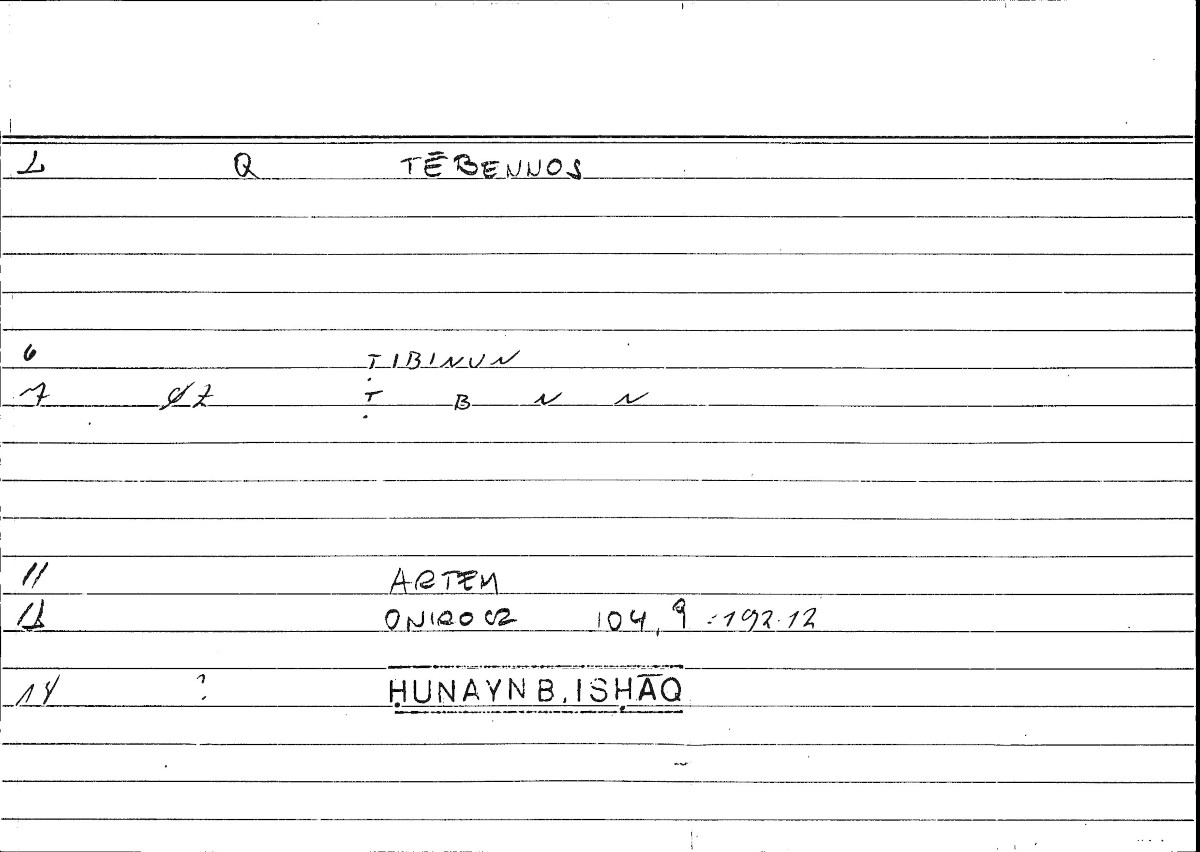 1 Q TĒBENNOS
6 ṬIBINUN
7 ØZ Ṭ B N N
11 ARTEM
12 ONIROCR 104,9 : 192.12
14 ? ḤUNAYN B. ISḤĀQ